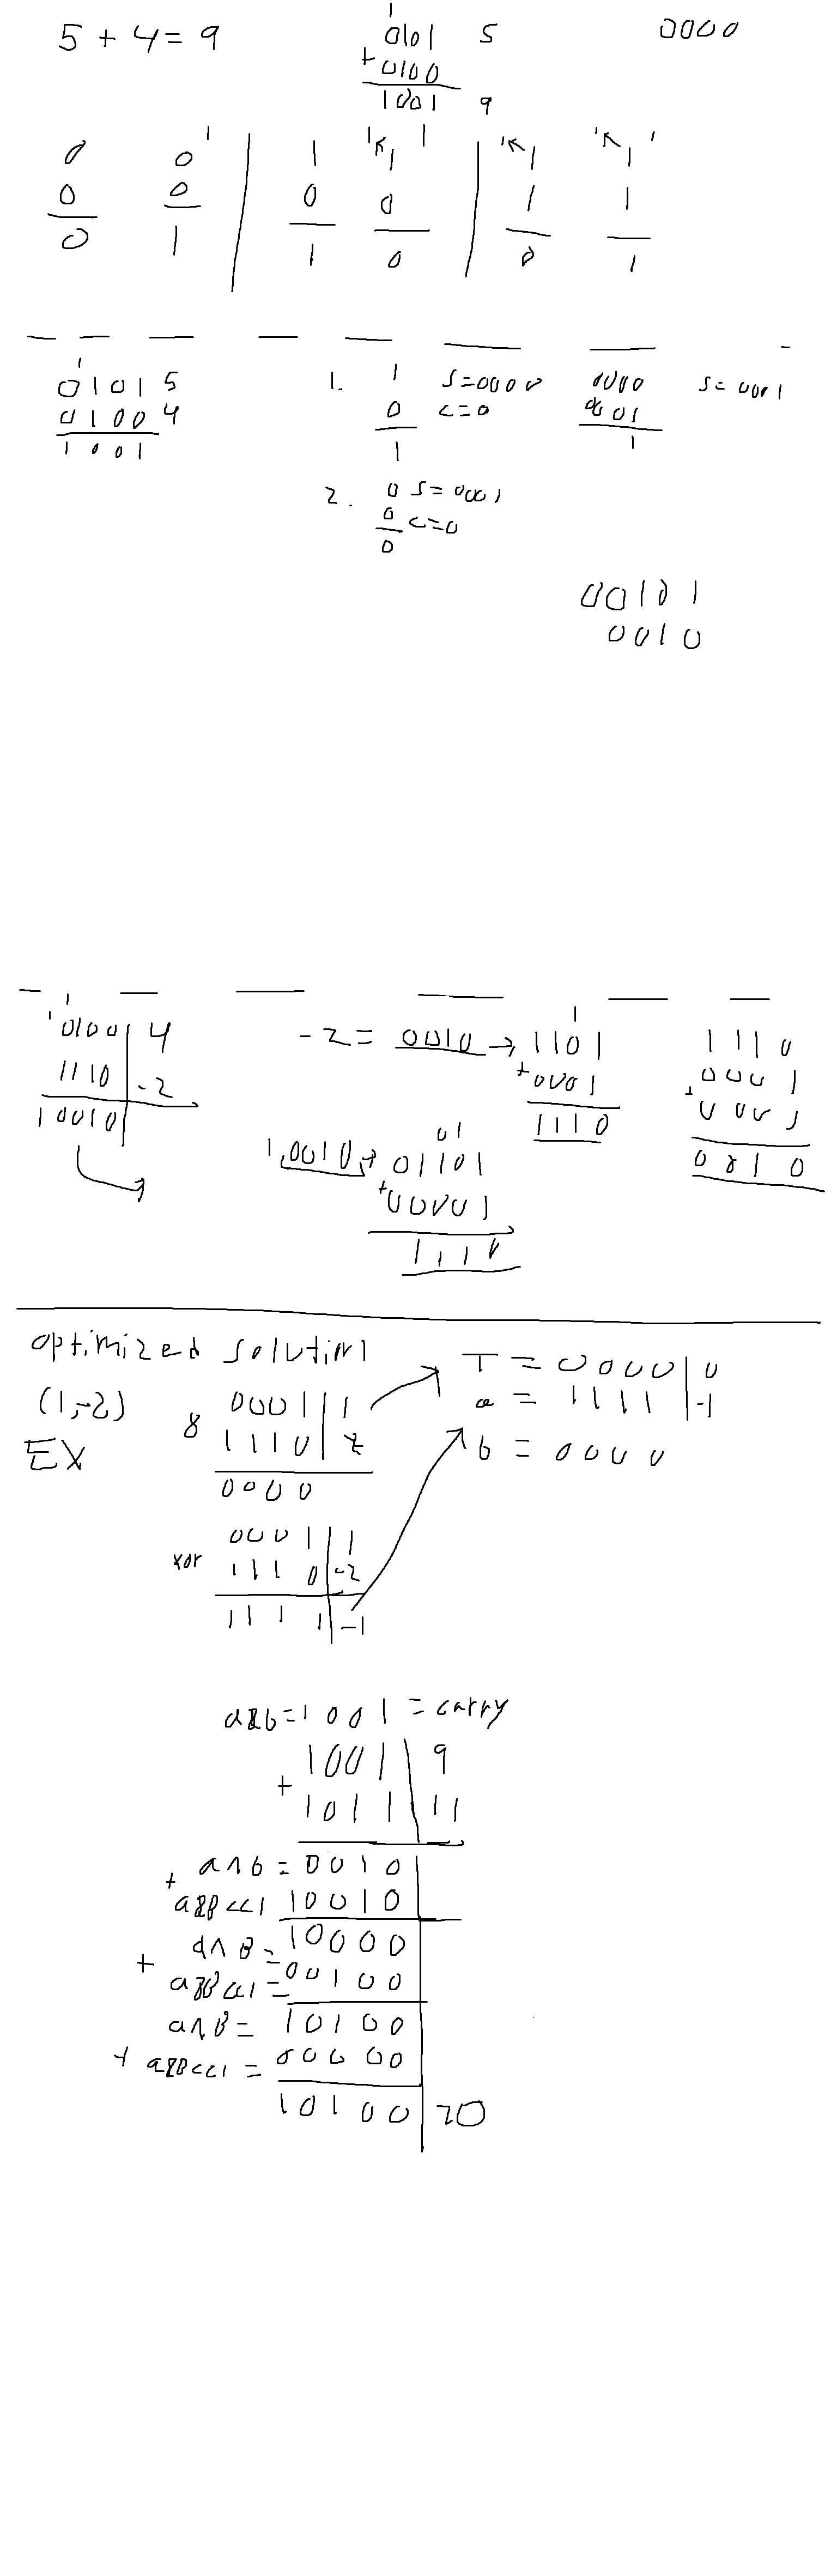 5 + 4 = 9
1
0101 5
+ 0100
1001 9
0000
0 0 1 | 1 1 1 | 1 1 1 1
0 0 | 0 0 | 1 1
0 1 | 1 0 | 0 1
1
0101 5
0100 4
1001
1. 1 S=0000 0000 S=0001
0 C=0 0001
1 1
2. 0 S=0001
0 C=0
0
00101
0010
1
1 0100 | 4
1110 | -2
10010
-2 = 0010 → 1101
1
+0001
1110
1110
0001
+ 0001
0010
1,0010 → 01101
01
+00001
1110
optimized solution
(1,-2)
EX
& 0001 | 1
1110 | 2
0000
T = 0000 | 0
a = 1111 | -1
b = 0000
xor 0001 | 1
1110 | -2
1111 | -1
a&b = 1001 = carry
1001 | 9
+ 1011 | 11
+ a^b = 0010
a&b<<1 10010
+ a^b = 10000
a&b<<1 = 00100
a^b = 10100
+ a&b<<1 = 00000
10100 | 20